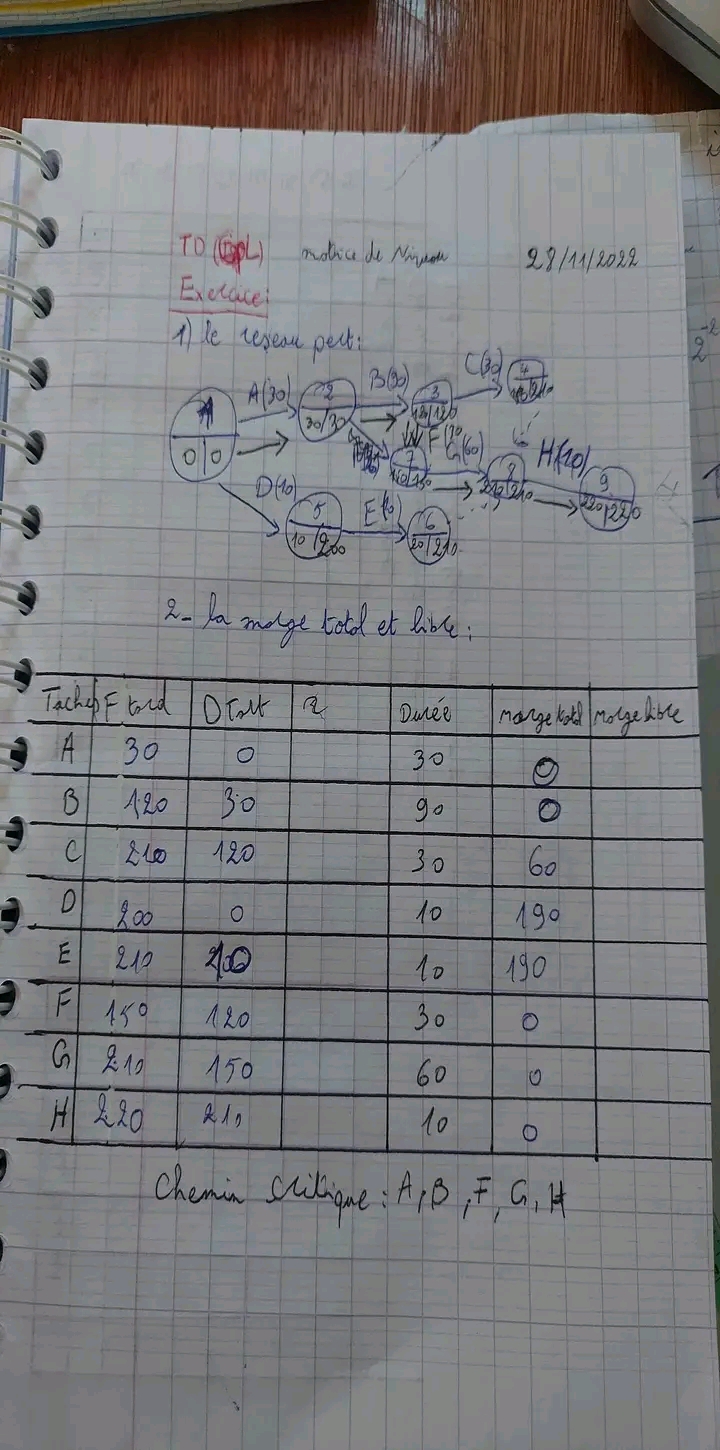 TD (GPL) matrice de Niveau 28/11/2022
Exercice:
1) le reseau pert:
A(30) B(90) C(30)
D(10) E(10) F(30 G(60) H(10)
1 0 | 0
2 30 | 30
3 120 | 120
4 210
5 10 | 200
6 20 | 210
7 150 | 150
8 210 | 210
9 220 | 220
2- la marge total et libre:
Taches F tard D tott Durée marge total marge libre
A 30 0 30 0
B 120 30 90 0
C 210 120 30 60
D 200 0 10 190
E 210 10 190
F 150 120 30 0
G 210 150 60 0
H 220 210 10 0
Chemin critique: A, B, F, G, H